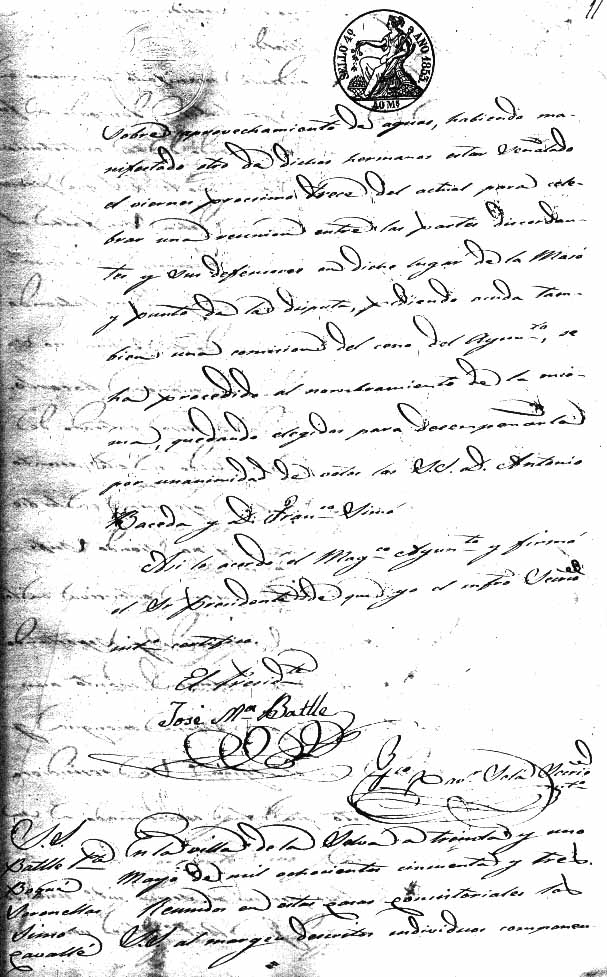 11
SELLO 4º AÑO 1853
40 Ms
Sobre aprovechamiento de aguas, habiendo ma-
nifestado otro de dichos hermanos estar señalado
el viernes procsimo trece del actual para cele-
brar una reunion entre las partes discordan-
tes y sus defensores en dicho lugar de la Masó
y punto de la disputa, pidiendo acuda tam-
bien una comicion del ceno del Ayunto, se
ha procedido al nombramiento de la mis-
ma, quedando elegidos para desempeñarla
por unanimidad de votos los S.S. D. Antonio
y D. Franco Simó
Asi lo acordó el Magco Ayunto y firmó
el Sr Presidente de que yo el infro Secrio
into certifico.
El Presidte
José Ma Batlle
Solá Secrio
S.S.
Batlle Pte
En la villa de la Selva a treinta y uno
Mayo de mil ochocientos cincuenta y tres.
Reunidos en estas casas concistoriales los
Simó
S.S. al margen descritos individuos componen
Cavallé